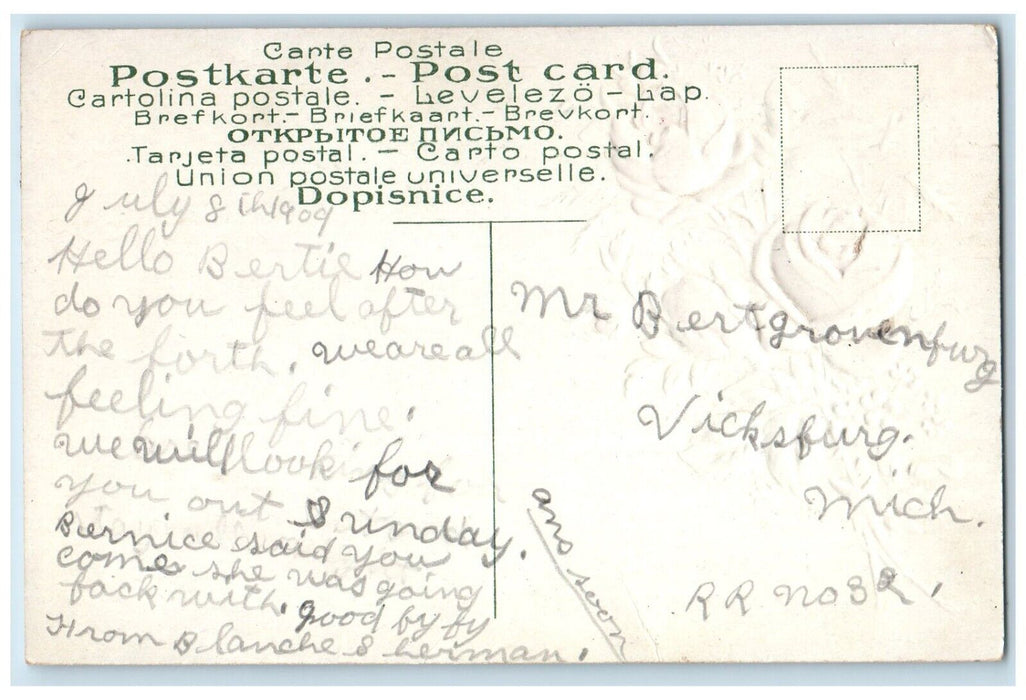 Carte Postale
Postkarte .- Post card.
Cartolina postale. - Levelezö - Lap.
Brefkort.- Briefkaart.- Brevkort.
ОТКРЫТОЕ ПИСЬМО.
.Tarjeta postal. - Carto postal.
Union postale universelle.
Dopisnice.
July 8 th 1909
Hello Bertie How
do you feel after
the forth, we are all
feeling fine.
we will look for
you out Sunday.
Bernice said you
come she was going
back with. good by by
From Blanche Sherman.
ans soon
Mr Bert grovenburg
Vicksburg.
Mich.
RR no 32.